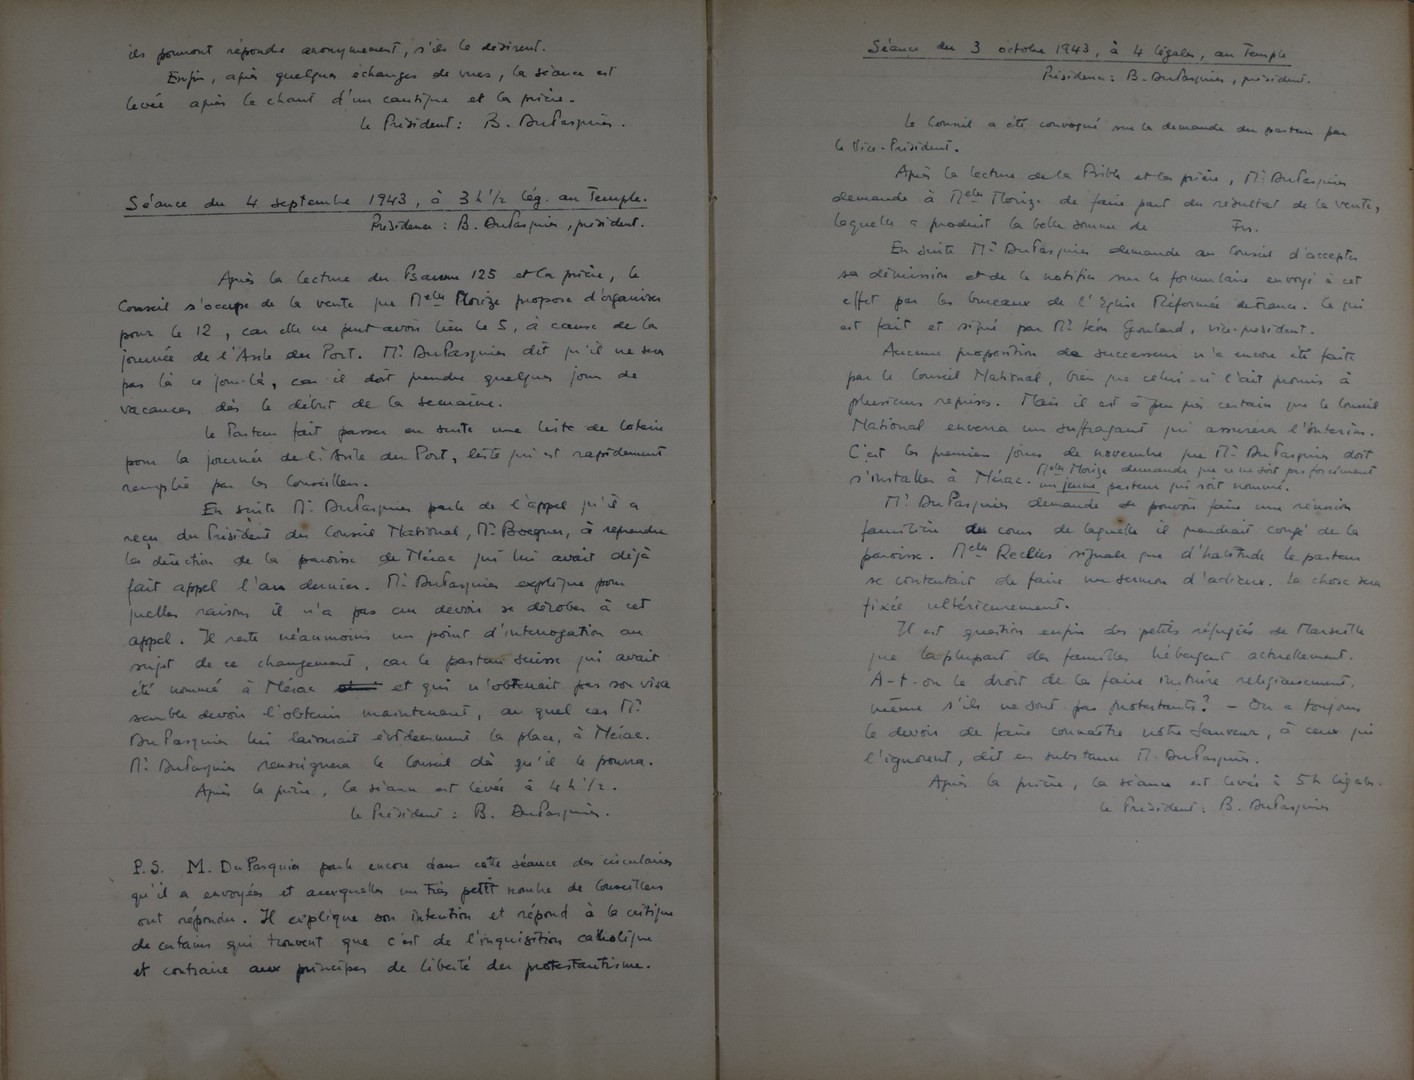 ils pourront répondre anonymement, s'ils le désirent.
Enfin, après quelques échanges de vues, la séance est
levée après le chant d'un cantique et la prière.
le Président : B. DuPasquier.
Séance du 4 septembre 1943, à 3 h 1/2 lég. au Temple.
Présidence : B. DuPasquier, président.
Après la lecture du Psaume 125 et la prière, le
Conseil s'occupe de la vente que Melle Morize propose d'organiser
pour le 12, car elle ne peut avoir lieu le 5, à cause de la
journée de l'Asile du Port. Mr DuPasquier dit qu'il ne sera
pas là ce jour-là, car il doit prendre quelques jours de
vacances dès le début de la semaine.
le Pasteur fait passer en suite une liste de loterie
pour la journée de l'Asile du Port, liste qui est rapidement
remplie par les Conseillers.
En suite Mr DuPasquier parle de l'appel qu'il a
reçu du Président du Conseil National, Mr Boegner, à reprendre
la direction de la paroisse de Nérac qui lui avait déjà
fait appel l'an dernier. Mr DuPasquier explique pour
quelles raisons il n'a pas cru devoir se dérober à cet
appel. Il reste néanmoins un point d'interrogation au
sujet de ce changement, car le pasteur suisse qui avait
été nommé à Nérac et qui n'obtenait pas son visa
semble devoir l'obtenir maintenant, au quel cas Mr
DuPasquier lui laisserait évidemment la place, à Nérac.
Mr DuPasquier renseignera le Conseil dès qu'il le pourra.
Après la prière, la séance est levée à 4 h 1/2.
le Président : B. DuPasquier.
P.S. M. DuPasquier parle encore dans cette séance des circulaires
qu'il a envoyées et auxquelles un très petit nombre de Conseillers
ont répondu. Il explique son intention et répond à la critique
de certains qui trouvent que c'est de l'inquisition catholique
et contraire aux principes de liberté du protestantisme.
Séance du 3 octobre 1943, à 4 légales, au Temple
Présidence : B. DuPasquier, président.
le Conseil a été convoqué sur la demande du pasteur par
le Vice-Président.
Après la lecture de la Bible et la prière, Mr DuPasquier
demande à Melle Morize de faire part du résultat de la vente,
laquelle a produit la belle somme de Frs.
En suite Mr DuPasquier demande au Conseil d'accepter
sa démission et de le notifier sur le formulaire envoyé à cet
effet par les bureaux de l'Eglise Réformée de France. Ce qui
est fait et signé par Mr Léon Goulard, vice-président.
Aucune proposition de successeur n'a encore été faite
par le Conseil National, bien que celui-ci l'ait promis à
plusieurs reprises. Mais il est à peu près certain que le Conseil
National enverra un suffragant qui assurera l'intérim.
C'est les premiers jours de novembre que Mr DuPasquier doit
s'installer à Nérac. Melle Morize demande que ce ne soit pas forcément
un jeune pasteur qui soit nommé.
Mr DuPasquier demande de pouvoir faire une réunion
familière au cours de laquelle il prendrait congé de la
paroisse. Melle Reclus signale que d'habitude le pasteur
se contentait de faire un sermon d'adieux. la chose sera
fixée ultérieurement.
Il est question enfin des petits réfugiés de Marseille
que la plupart des familles hébergent actuellement.
A-t-on le droit de les faire instruire religieusement,
même s'ils ne sont pas protestants? - On a toujours
le devoir de faire connaître notre Sauveur, à ceux qui
l'ignorent, dit en substance M. DuPasquier.
Après la prière, la séance est levée à 5 h légales.
le Président : B. DuPasquier